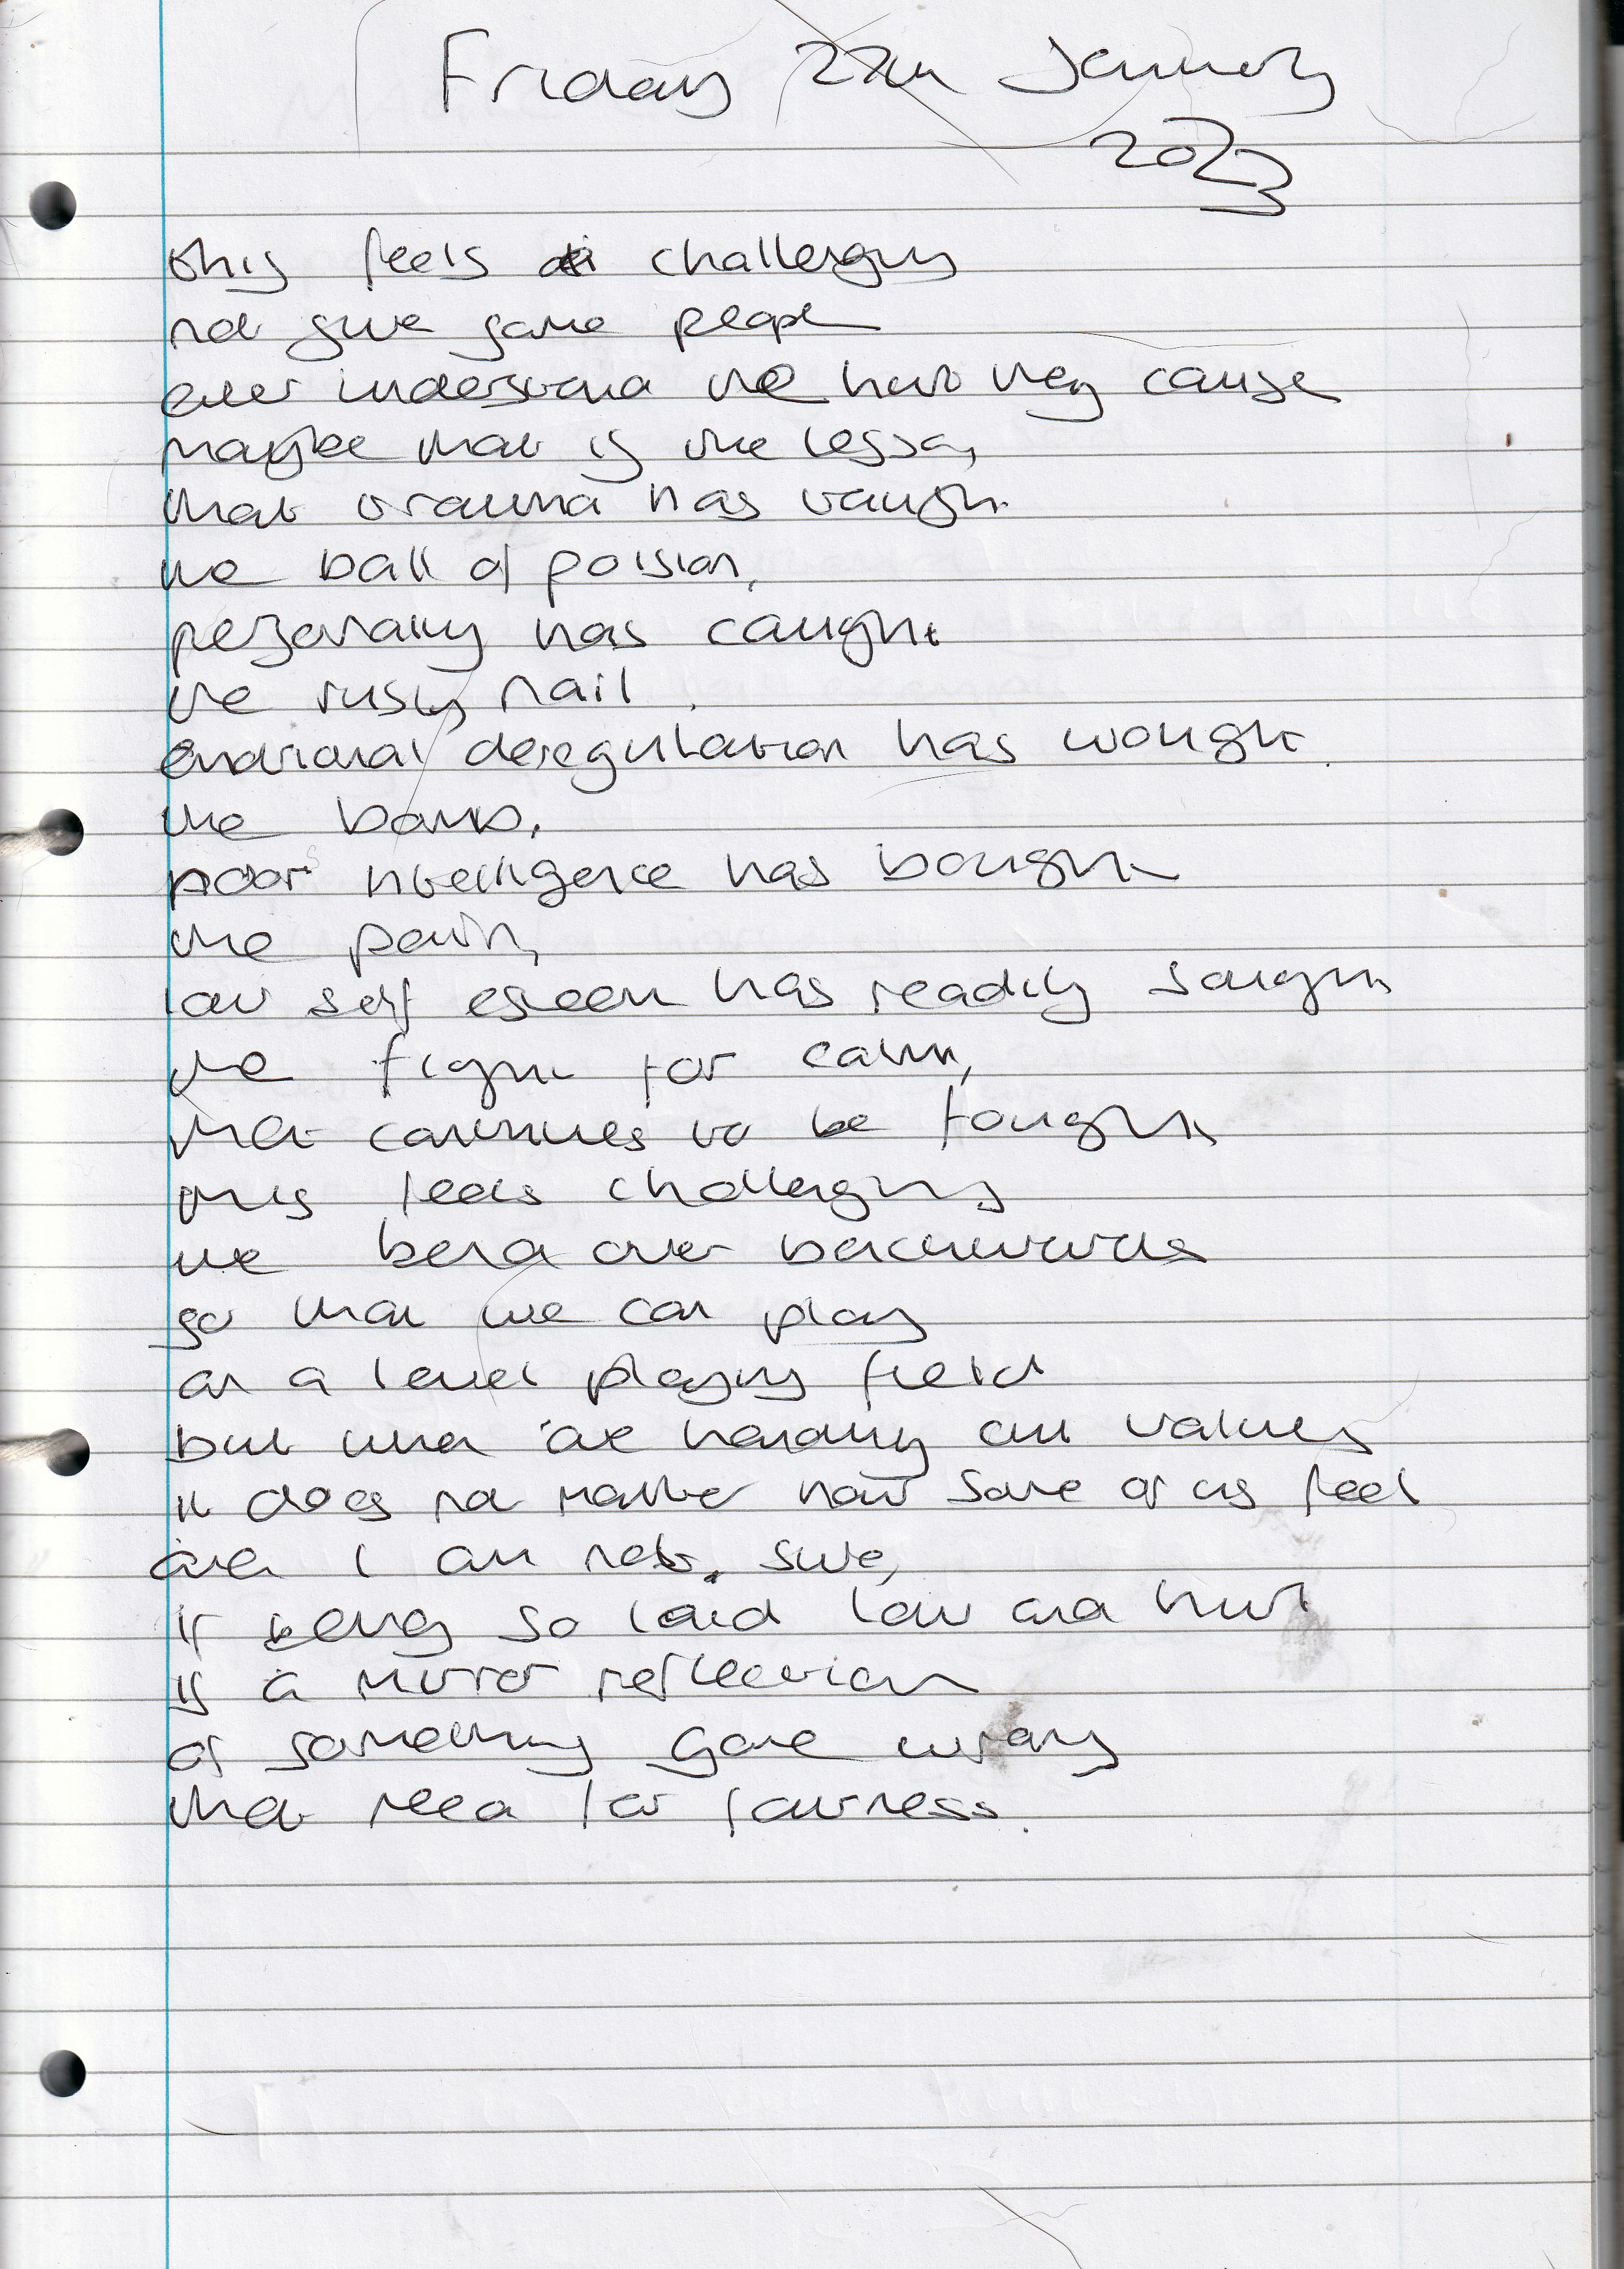 Friday 27th January
2023
this feels challenging
not sure some people
ever understand the hurt they cause
maybe that is the lesson,
that trauma has taught
the ball of poision,
personality has caught
the rusty nail,
emotional deregulation has wought
the bomb,
poor intelligence has bought
the pain,
low self esteem has readily sought
the fight for calm,
that continues to be fought
this feels challenging
we bend over backwards
so that we can play
on a level playing field
but when are handing out values
it does not matter how some of us feel
and I am not sure,
if being so laid low and hurt
is a mirror reflection
of something gone wrong
that need for fairness.